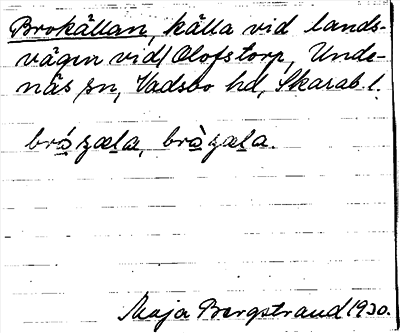 Brokällan, källa vid lands-
vägen vid Olofstorp, Unde-
näs sn, Vadsbo hd, Skarab. l.
Maja Bergstrand 1930.